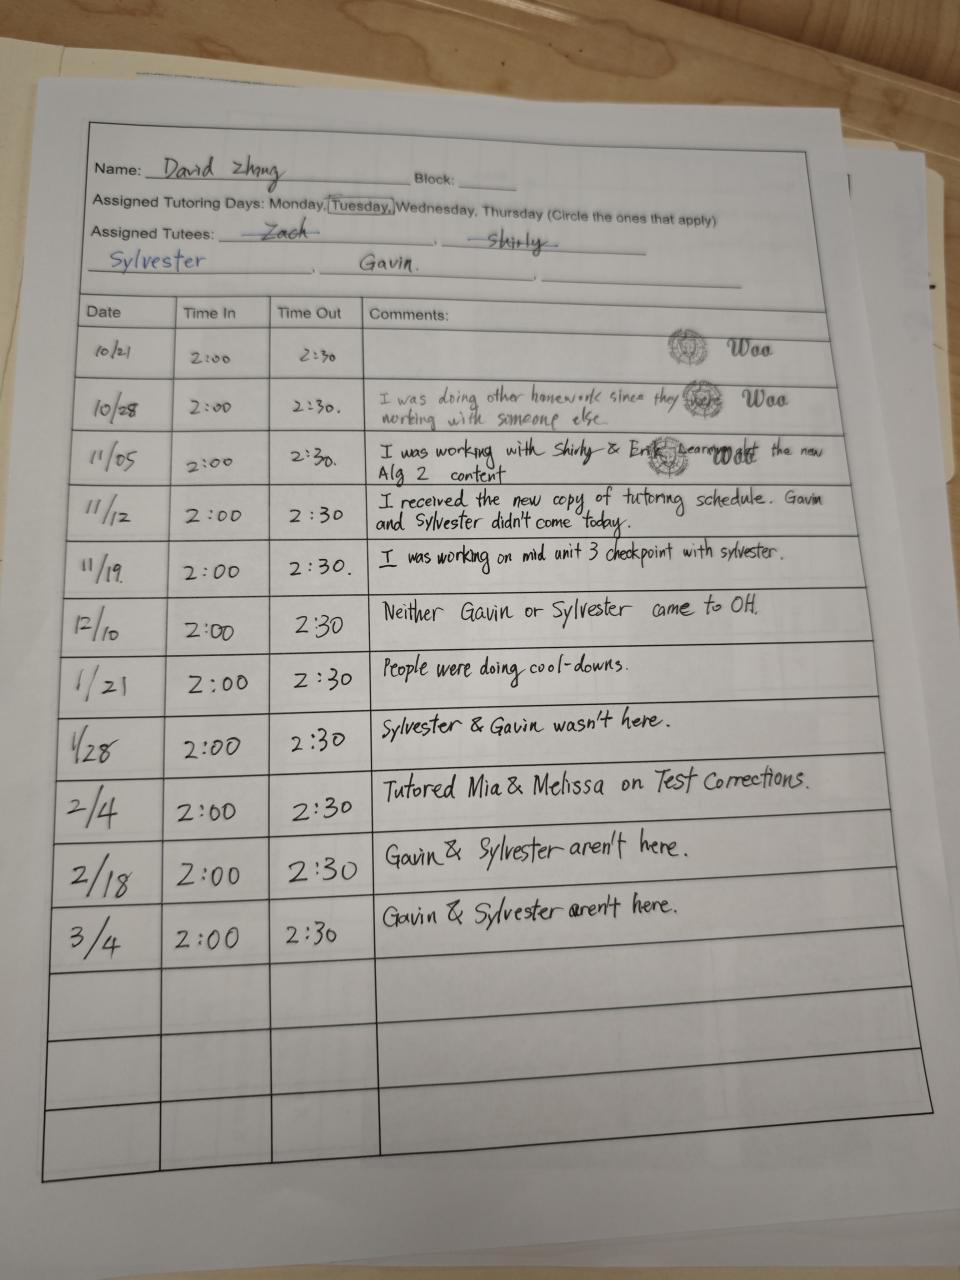 Name: David Zhang Block:
Assigned Tutoring Days: Monday, Tuesday, Wednesday, Thursday (Circle the ones that apply)
Assigned Tutees: Zach, Shirly
Sylvester, Gavin.
Date Time In Time Out Comments:
10/21 2:00 2:30 Woo
10/28 2:00 2:30. I was doing other homework since they were Woo
working with someone else.
11/05 2:00 2:30. I was working with Shirly & Erik the new
Alg 2 content Woo
11/12 2:00 2:30 I received the new copy of tutoring schedule. Gavin
and Sylvester didn't come today.
11/19. 2:00 2:30. I was working on mid unit 3 checkpoint with sylvester.
12/10 2:00 2:30 Neither Gavin or Sylvester came to OH.
1/21 2:00 2:30 People were doing cool-downs.
1/28 2:00 2:30 Sylvester & Gavin wasn't here.
2/4 2:00 2:30 Tutored Mia & Melissa on Test Corrections.
2/18 2:00 2:30 Gavin & Sylvester aren't here.
3/4 2:00 2:30 Gavin & Sylvester aren't here.